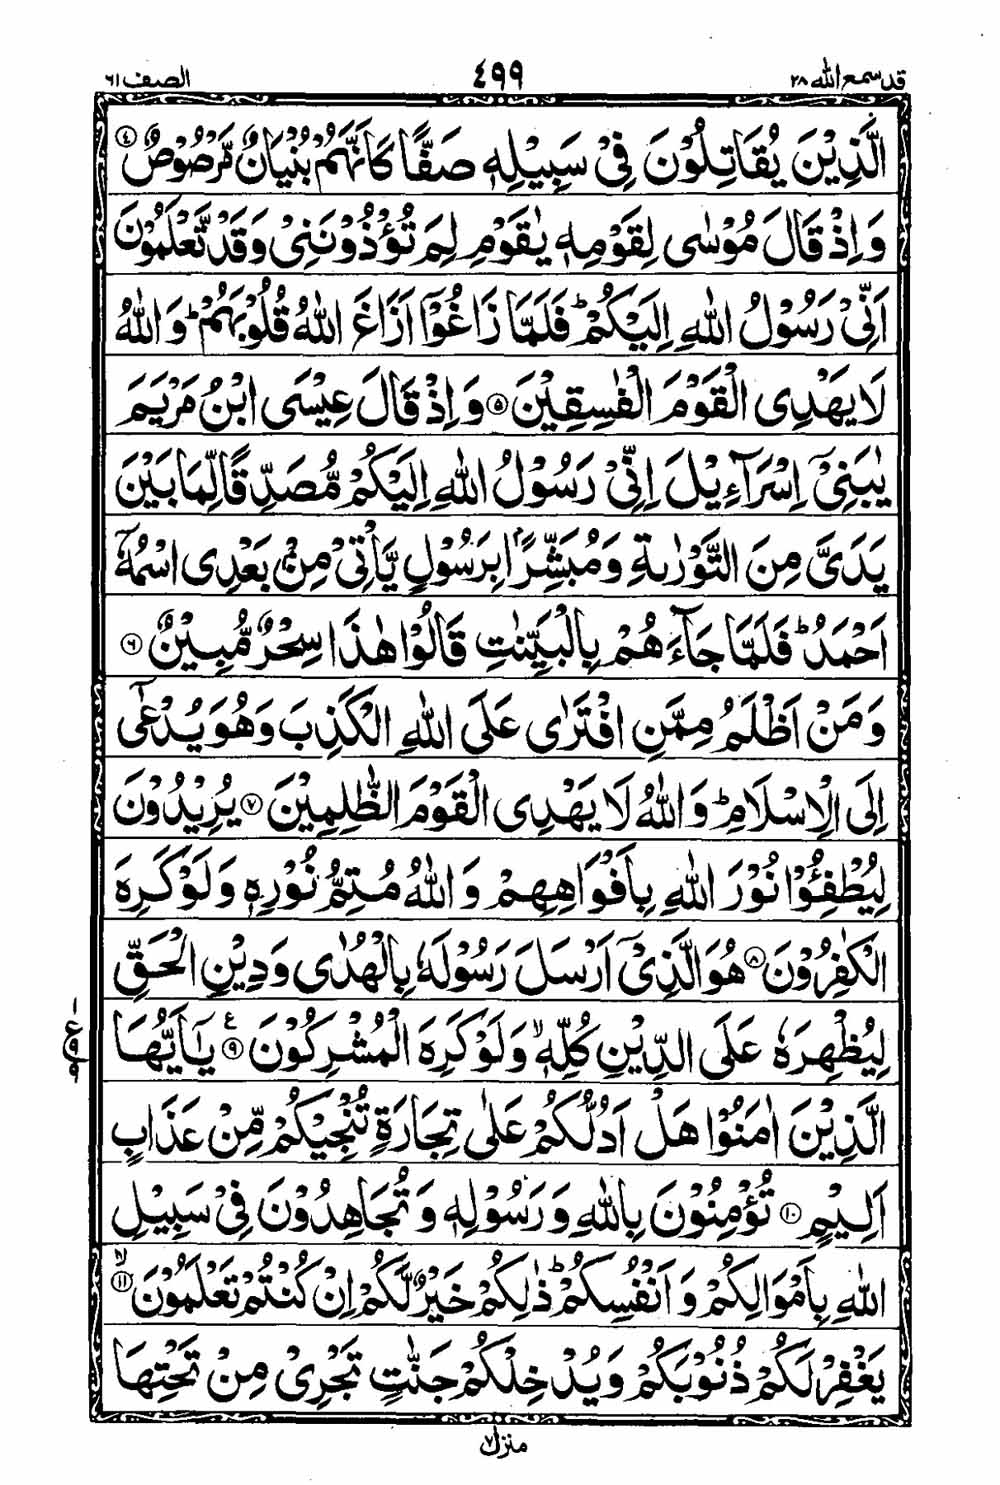 قد سمع الله ٢٨ ٤٩٩ الصف ٦١
الَّذِيْنَ يُقَاتِلُوْنَ فِيْ سَبِيْلِهٖ صَفًّا كَاَنَّهُمْ بُنْيَانٌ مَّرْصُوْصٌ ④
وَاِذْ قَالَ مُوْسٰى لِقَوْمِهٖ يٰقَوْمِ لِمَ تُؤْذُوْنَنِيْ وَقَدْ تَّعْلَمُوْنَ
اَنِّيْ رَسُوْلُ اللّٰهِ اِلَيْكُمْ ؕ فَلَمَّا زَاغُوْۤا اَزَاغَ اللّٰهُ قُلُوْبَهُمْ ؕ وَاللّٰهُ
لَا يَهْدِى الْقَوْمَ الْفٰسِقِيْنَ ⑤ وَاِذْ قَالَ عِيْسَى ابْنُ مَرْيَمَ
يٰبَنِيْۤ اِسْرَآءِيْلَ اِنِّيْ رَسُوْلُ اللّٰهِ اِلَيْكُمْ مُّصَدِّقًا لِّمَا بَيْنَ
يَدَيَّ مِنَ التَّوْرٰىةِ وَمُبَشِّرًۢا بِرَسُوْلٍ يَّاْتِيْ مِنْۢ بَعْدِى اسْمُهٗۤ
اَحْمَدُ ؕ فَلَمَّا جَآءَهُمْ بِالْبَيِّنٰتِ قَالُوْا هٰذَا سِحْرٌ مُّبِيْنٌ ⑥
وَمَنْ اَظْلَمُ مِمَّنِ افْتَرٰى عَلَى اللّٰهِ الْكَذِبَ وَهُوَ يُدْعٰۤى
اِلَى الْاِسْلَامِ ؕ وَاللّٰهُ لَا يَهْدِى الْقَوْمَ الظّٰلِمِيْنَ ⑦ يُرِيْدُوْنَ
لِيُطْفِـُٔوْا نُوْرَ اللّٰهِ بِاَفْوَاهِهِمْ وَاللّٰهُ مُتِمُّ نُوْرِهٖ وَلَوْ كَرِهَ
الْكٰفِرُوْنَ ⑧ هُوَ الَّذِيْۤ اَرْسَلَ رَسُوْلَهٗ بِالْهُدٰى وَدِيْنِ الْحَقِّ
لِيُظْهِرَهٗ عَلَى الدِّيْنِ كُلِّهٖ ۙ وَلَوْ كَرِهَ الْمُشْرِكُوْنَ ⑨ ع يٰۤاَيُّهَا
الَّذِيْنَ اٰمَنُوْا هَلْ اَدُلُّكُمْ عَلٰى تِجَارَةٍ تُنْجِيْكُمْ مِّنْ عَذَابٍ
اَلِيْمٍ ⑩ تُؤْمِنُوْنَ بِاللّٰهِ وَرَسُوْلِهٖ وَتُجَاهِدُوْنَ فِيْ سَبِيْلِ
اللّٰهِ بِاَمْوَالِكُمْ وَاَنْفُسِكُمْ ؕ ذٰلِكُمْ خَيْرٌ لَّكُمْ اِنْ كُنْتُمْ تَعْلَمُوْنَ ۙ ⑪
يَغْفِرْ لَكُمْ ذُنُوْبَكُمْ وَيُدْخِلْكُمْ جَنّٰتٍ تَجْرِيْ مِنْ تَحْتِهَا
منزل ٧